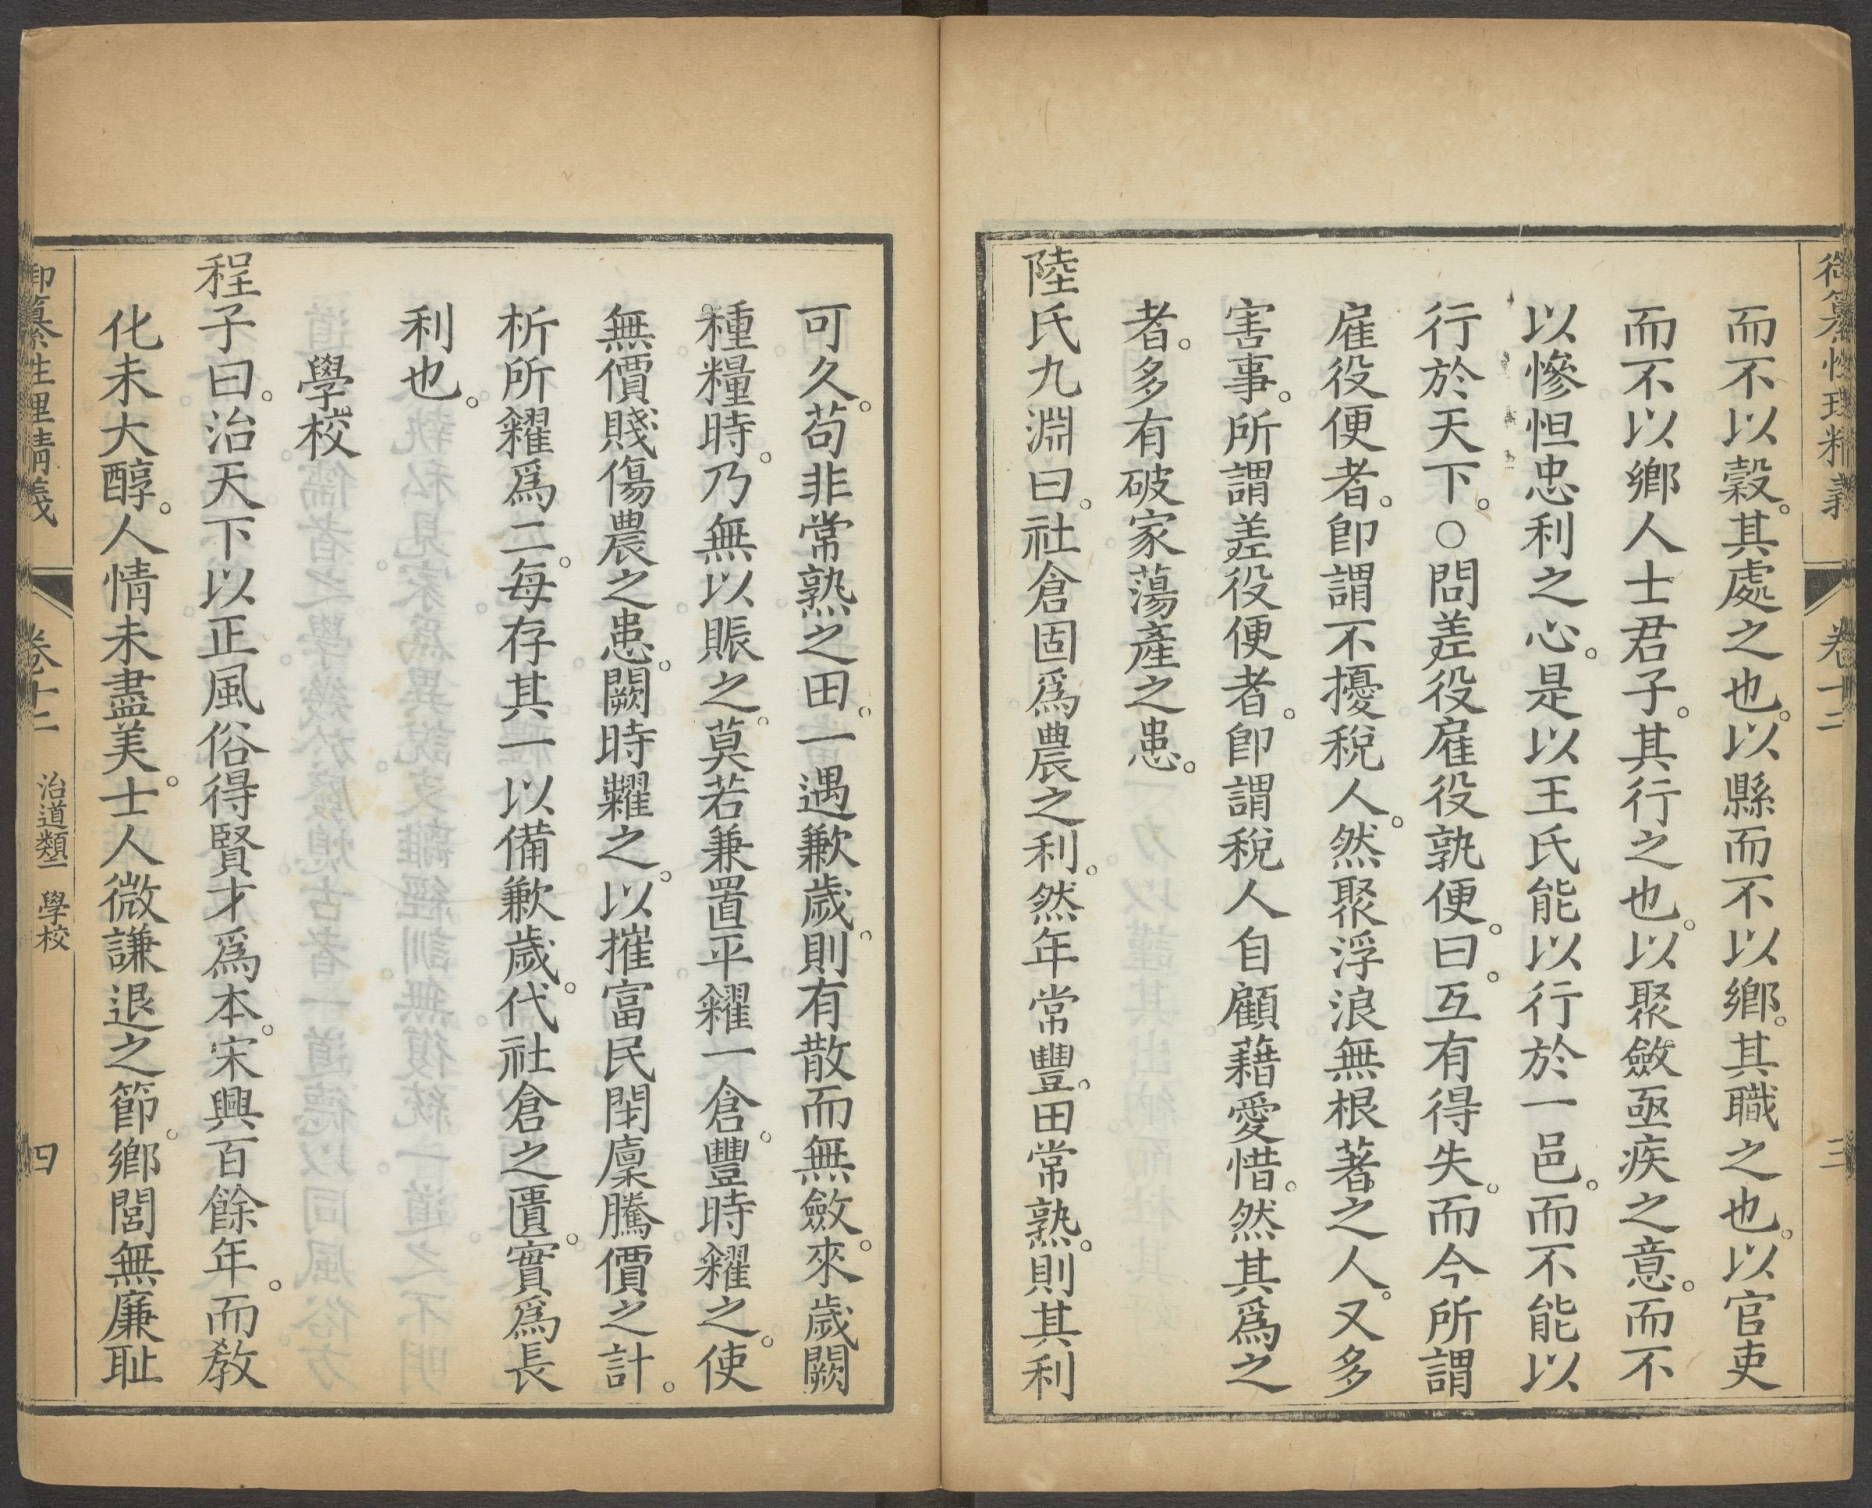 御纂性理精義 卷十二 三
而不以穀。其處之也。以縣而不以鄉。其職之也。以官吏
而不以鄉人士君子。其行之也。以聚斂亟疾之意。而不
以慘怛忠利之心。是以王氏能以行於一邑。而不能以
行於天下。○問差役雇役孰便。曰。互有得失。而今所謂
雇役便者。卽謂不擾稅人。然聚浮浪無根著之人。又多
害事。所謂差役便者。卽謂稅人自顧藉愛惜。然其爲之
者。多有破家蕩產之患。
陸氏九淵曰。社倉固爲農之利。然年常豐。田常熟。則其利
可久。苟非常熟之田。一遇歉歲。則有散而無斂。來歲闕
種糧時。乃無以賑之。莫若兼置平糴一倉。豐時糴之。使
無價賤傷農之患。闕時糶之。以摧富民閉廩騰價之計。
析所糴爲二。每存其一以備歉歲。代社倉之匱。實爲長
利也。
學校
程子曰。治天下以正風俗得賢才爲本。宋興百餘年。而教
化未大醇。人情未盡美。士人微謙退之節。鄉閭無廉恥
御纂性理精義 卷十二 治道類一 學校 四